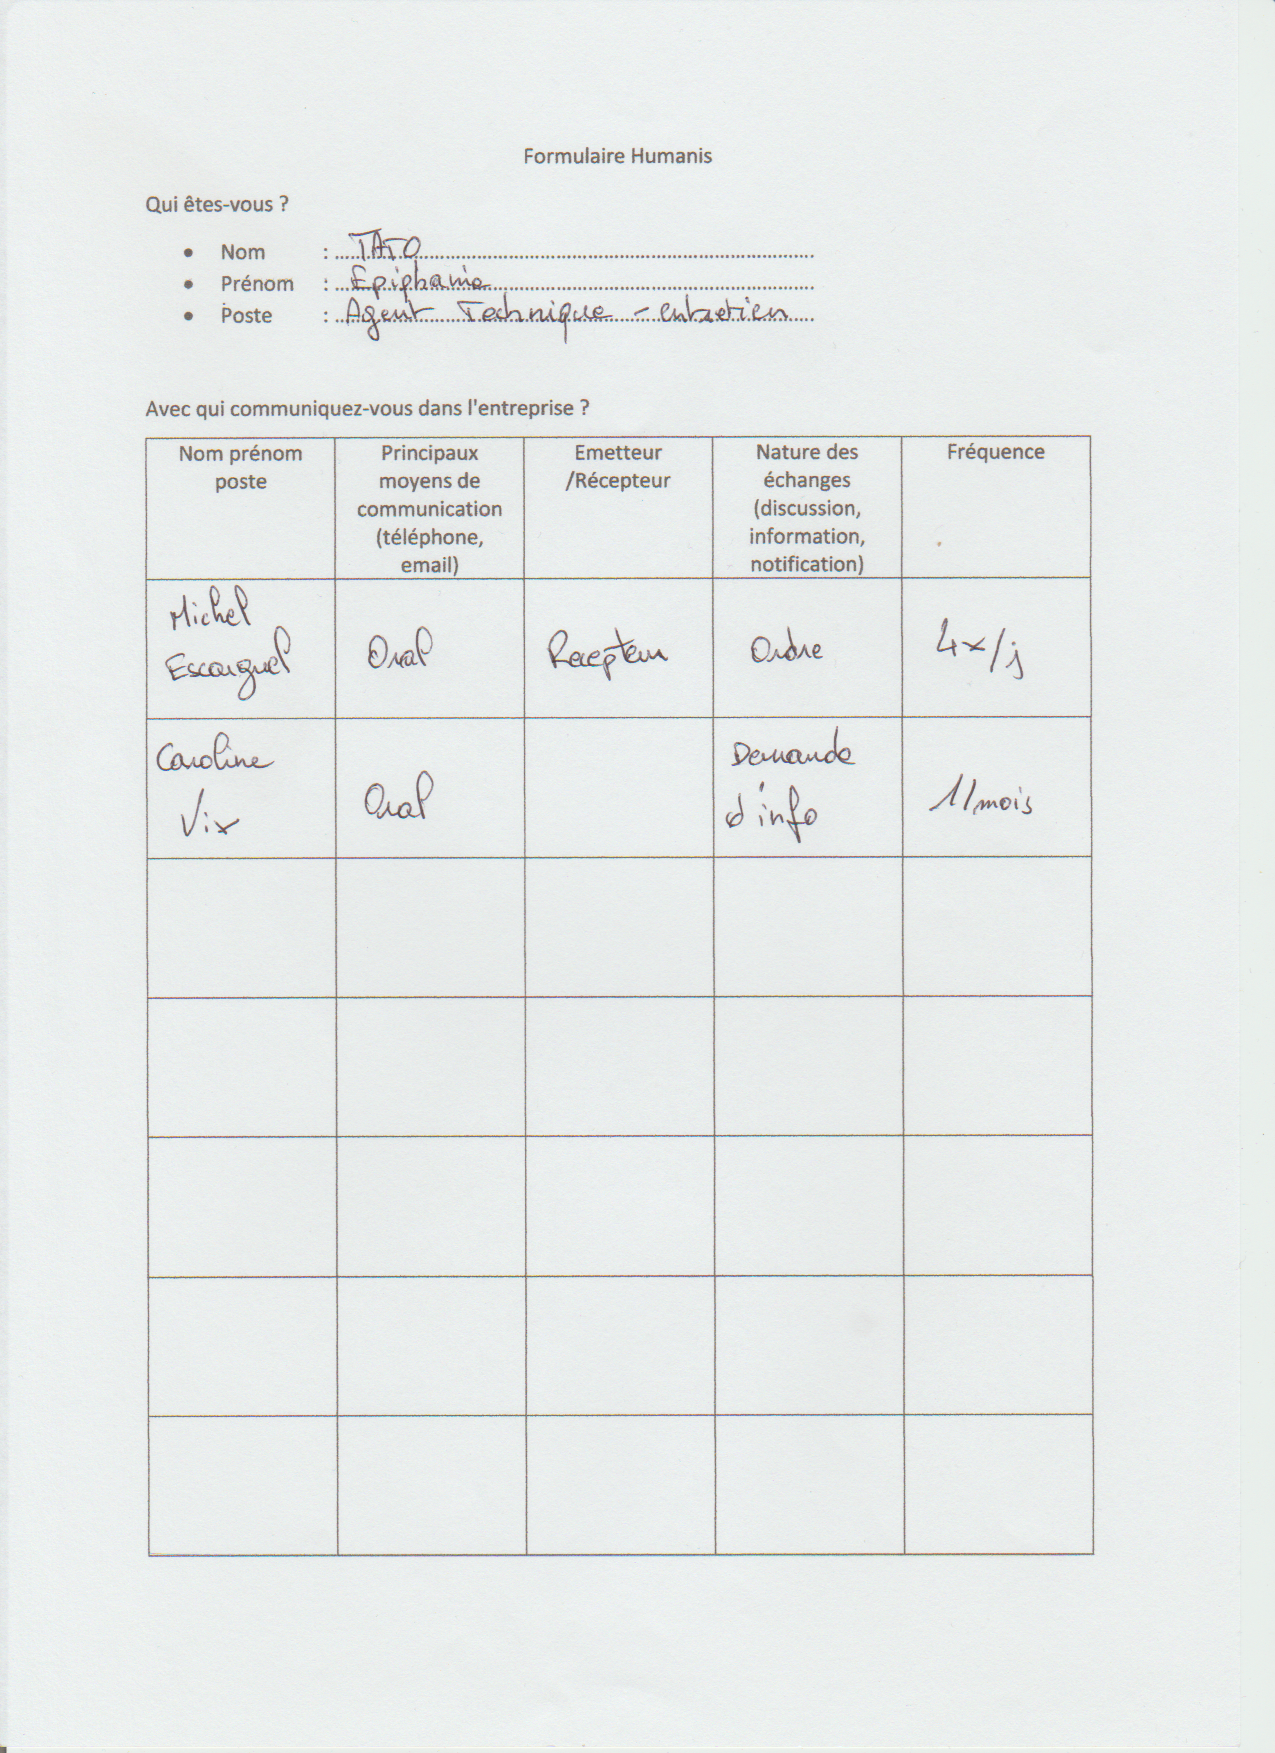 Formulaire Humanis
Qui êtes-vous ?
• Nom : TATO
• Prénom : Epiphanie
• Poste : Agent Technique - entretien
Avec qui communiquez-vous dans l'entreprise ?
Nom prénom
poste
Principaux
moyens de
communication
(téléphone,
email)
Emetteur
/Récepteur
Nature des
échanges
(discussion,
information,
notification)
Fréquence
Michel
Escarguel
Oral
Recepteur
Ordre
4x/j
Caroline
Vix
Oral
Demande
d'info
1/mois